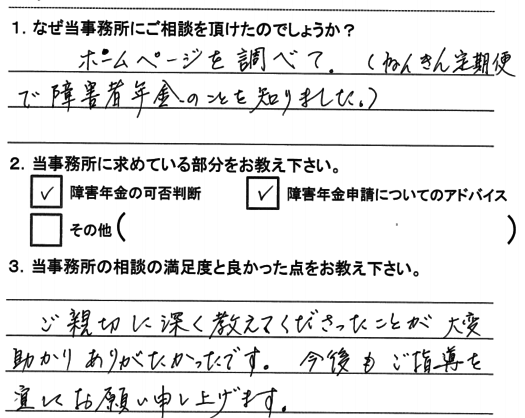 1. なぜ当事務所にご相談を頂けたのでしょうか？
ホームページを調べて。(ねんきん定期便
で障害者年金のことを知りました。)
2. 当事務所に求めている部分をお教え下さい。
✓ 障害年金の可否判断 ✓ 障害年金申請についてのアドバイス
その他( )
3. 当事務所の相談の満足度と良かった点をお教え下さい。
ご親切に深く教えてくださったことが大変
助かりありがたかったです。今後もご指導を
宜しくお願い申し上げます。